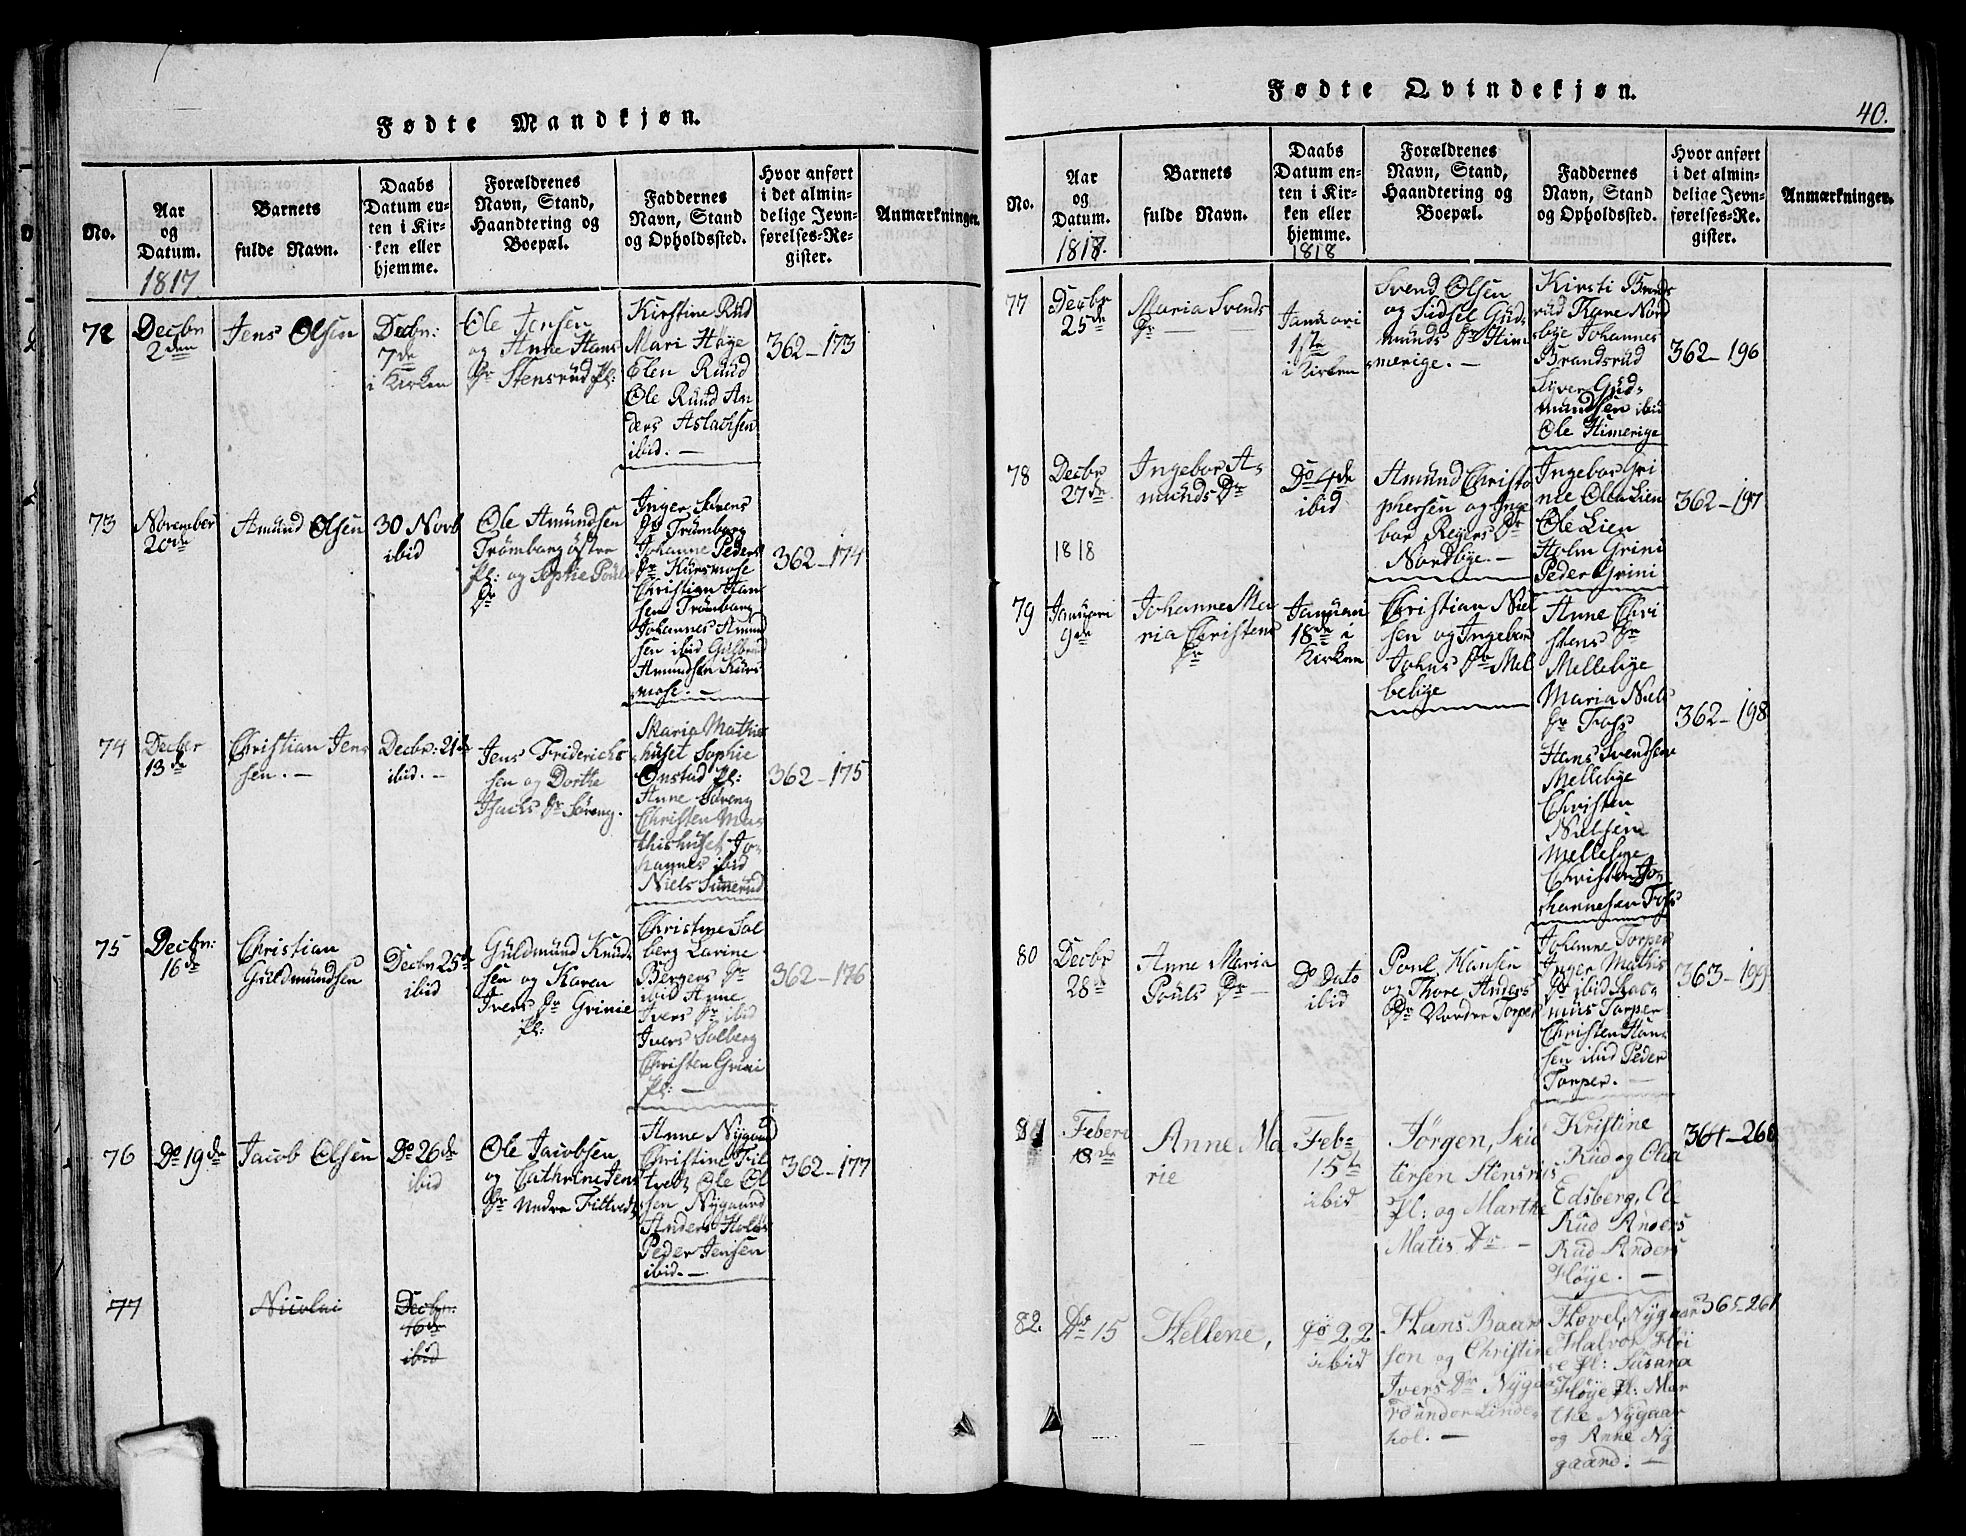 Fødte Mandkjøn.
No.
Aar
og
Datum.
1817
Barnets
fulde Navn.
Daabs
Datum en-
ten i Kir-
ken eller
hjemme.
Forældrenes
Navn, Stand,
Haandtering og
Boepæl.
Faddernes
Navn, Stand
og Opholdssted.
Hvor anført
i det almin-
delige Jevn-
førelses-Re-
gister.
Anmærkninger.
72
Decbr
2den
Jens Olsen
Decbr:
7de
i Kirken
Ole Jensen
og Anne Hans
Dr Stensrud pl:
Kirstine Rud
Mari Høye
Elen Ruud
Ole Ruud An
ders Aslachsen
ibid. —
362–173
73
November
20de
Amund Olsen
30 Novb
ibid
Ole Amundsen
Trømborg østre
pl: og Sophie Pouls
Dr
Inger Sørens
Dr Trømborg
Johanne Peders
Dr Kursmose
Christian Han
sen Trømborg
Johannes Amund
sen ibid Gulbrand
Amundsen Kurs
mose. —
362–174
74
Decber
13de
Christian Jens
sen. —
Decbr: 21de
ibid. —
Jens Friderichs
sen og Dorthe
Isachs Dr Søreng.
Maria Mathis
huset Sophie
Onstad pl:
Anne Søreng
Christen Mat
thishuset Jo-
hannes ibid
Niels Sunerud
362–175
75
Decbr:
16de
Christian
Guldmundsen
Decbr 25de
ibid
Guldmund Knud
sen og Karen
Ivers Dr Grinie
pl:
Christine Sol
berg Larine
Bergers Dr
ibid Anne
Ivers Dr ibid
Ivers Solberg
Christen Grini
pl: —
362–176
76
Do 19de
Jacob Olsen
Do 26de
ibid
Ole Jacobsen
og Cathrine Jens
Dr Nedre Filtvedt
Anne Nygaard
Christine Fil
tvedt Ole Ol
sen Nygaard
Anders Holøs
Peder Jensen
ibid. —
362–177
77
Nicolai
Decbr:
16de
ibid
Fødte Qvindekjøn.
40.
No.
Aar
og
Datum.
1817.
Barnets
fulde Navn.
Daabs
Datum en-
ten i Kir-
ken eller
hjemme.
1818
Forældrenes
Navn, Stand,
Haandtering og
Boepæl.
Faddernes
Navn, Stand
og Opholdssted.
Hvor anført
i det almin-
delige Jevn-
førelses-Re-
gister.
Anmærkninger.
77
Decbr
25de
Maria Svends
Dr
Januari
1ste
i Kirken
Svend Olsen
og Sidsel Gud-
munds Dr Him
merige. —
Kirsti Brands
rud Thore Nord
bye Johannes
Brandsrud
Syver Gud-
mundsen ibid
Ole Himerige
362–196
78
Decbr
27de
Ingebor A-
munds Dr
Do 4de
ibid
Amund Christo
phersen og Inge
bor Reiers Dr
Nordbye. —
Ingebor Gri
nie Olea Lien
Ole Lien
Holm Grini
Peder Grini
362–197
1818
79
Januari
9de
Johanne Ma
ria Christens
Dr
Januari
18de i
Kirken
Christian Niel
sen og Ingebor
Johns Dr Mel
lebye
Anne Chri
stens Dr
Mellebye
Maria Niels
Dr Foss
Hans Svendsen
Mellebye
Christen
Nielsen
Mellebye
Christen Jo-
hannesen Foss
362–198
80
Decbr
28de
Anne Maria
Pouls Dr
Do Dato
ibid
Poul Hansen
og Thore Anders
Dr Nordre Torper
Johanne Torper
Inger Mathis
Dr ibid Ras-
mus Torper
Christen Han-
sen ibid Peder
Torper. —
363–199
81
Feber
8de
Anne Ma
rie
Feb-
15de
ibid
Jørgen, Skid
tersen Stensrud
pl: og Marthe
Matis Dr —
Kristine
Rud og Olea
Edsberg, Ole
Rud Anders
Rud Anders
Høye. —
364–260
82.
Do 15
Hellene,
Do 22
ibid
Hans Baar
son og Christine
Ivers Dr Nygaa
rd under Linde-
hol. —
Hovel, Nygaar
Halvor Høi
e pl: Susana
Høye pl: Mar
the Nygaar
og Anne Ny
gaard. —
365–261